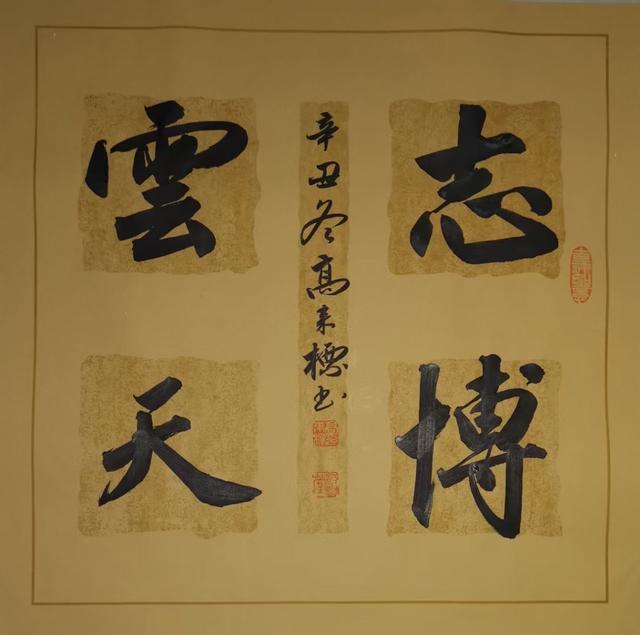 志博
雲天
辛丑冬高来標书